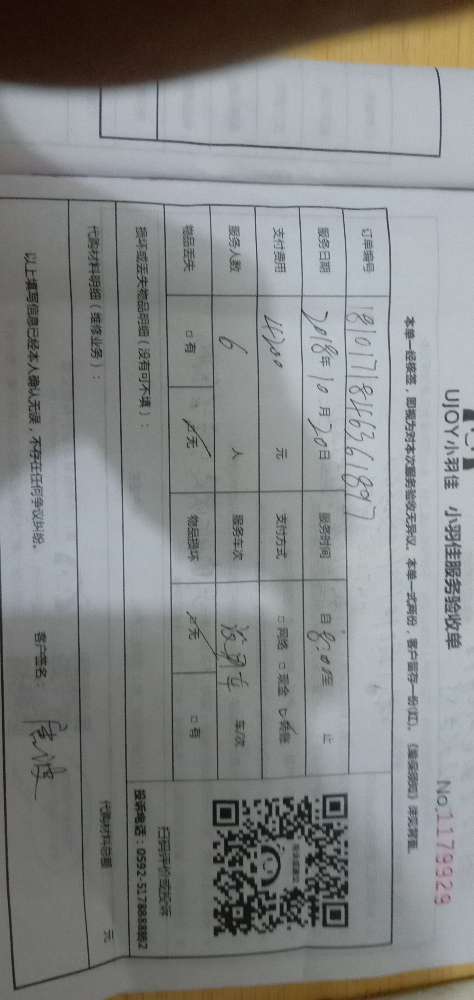 UJOY小羽佳 小羽佳服务验收单
No.1179929
本单一经核签，即视为对本次服务验收无异议。本单一式两份，客户留存一份(红)。
订单编号 181017846361897
服务日期 2018年10月20日 服务时间 自 8:00至 止
支付费用 4200 元 支付方式 □网络 □现金 ☑转账
服务人数 6 人 服务车次 车/次
物品丢失 □有 ☑无 物品损坏 ☑无 □有
损坏或丢失物品明细（没有可不填）：
扫码评价或投诉
投诉电话：0592-5178888转2
代购材料明细（维修业务）：
代购材料总额 元
以上填写信息已经本人确认无误，不存在任何争议纠纷。 客户签名：